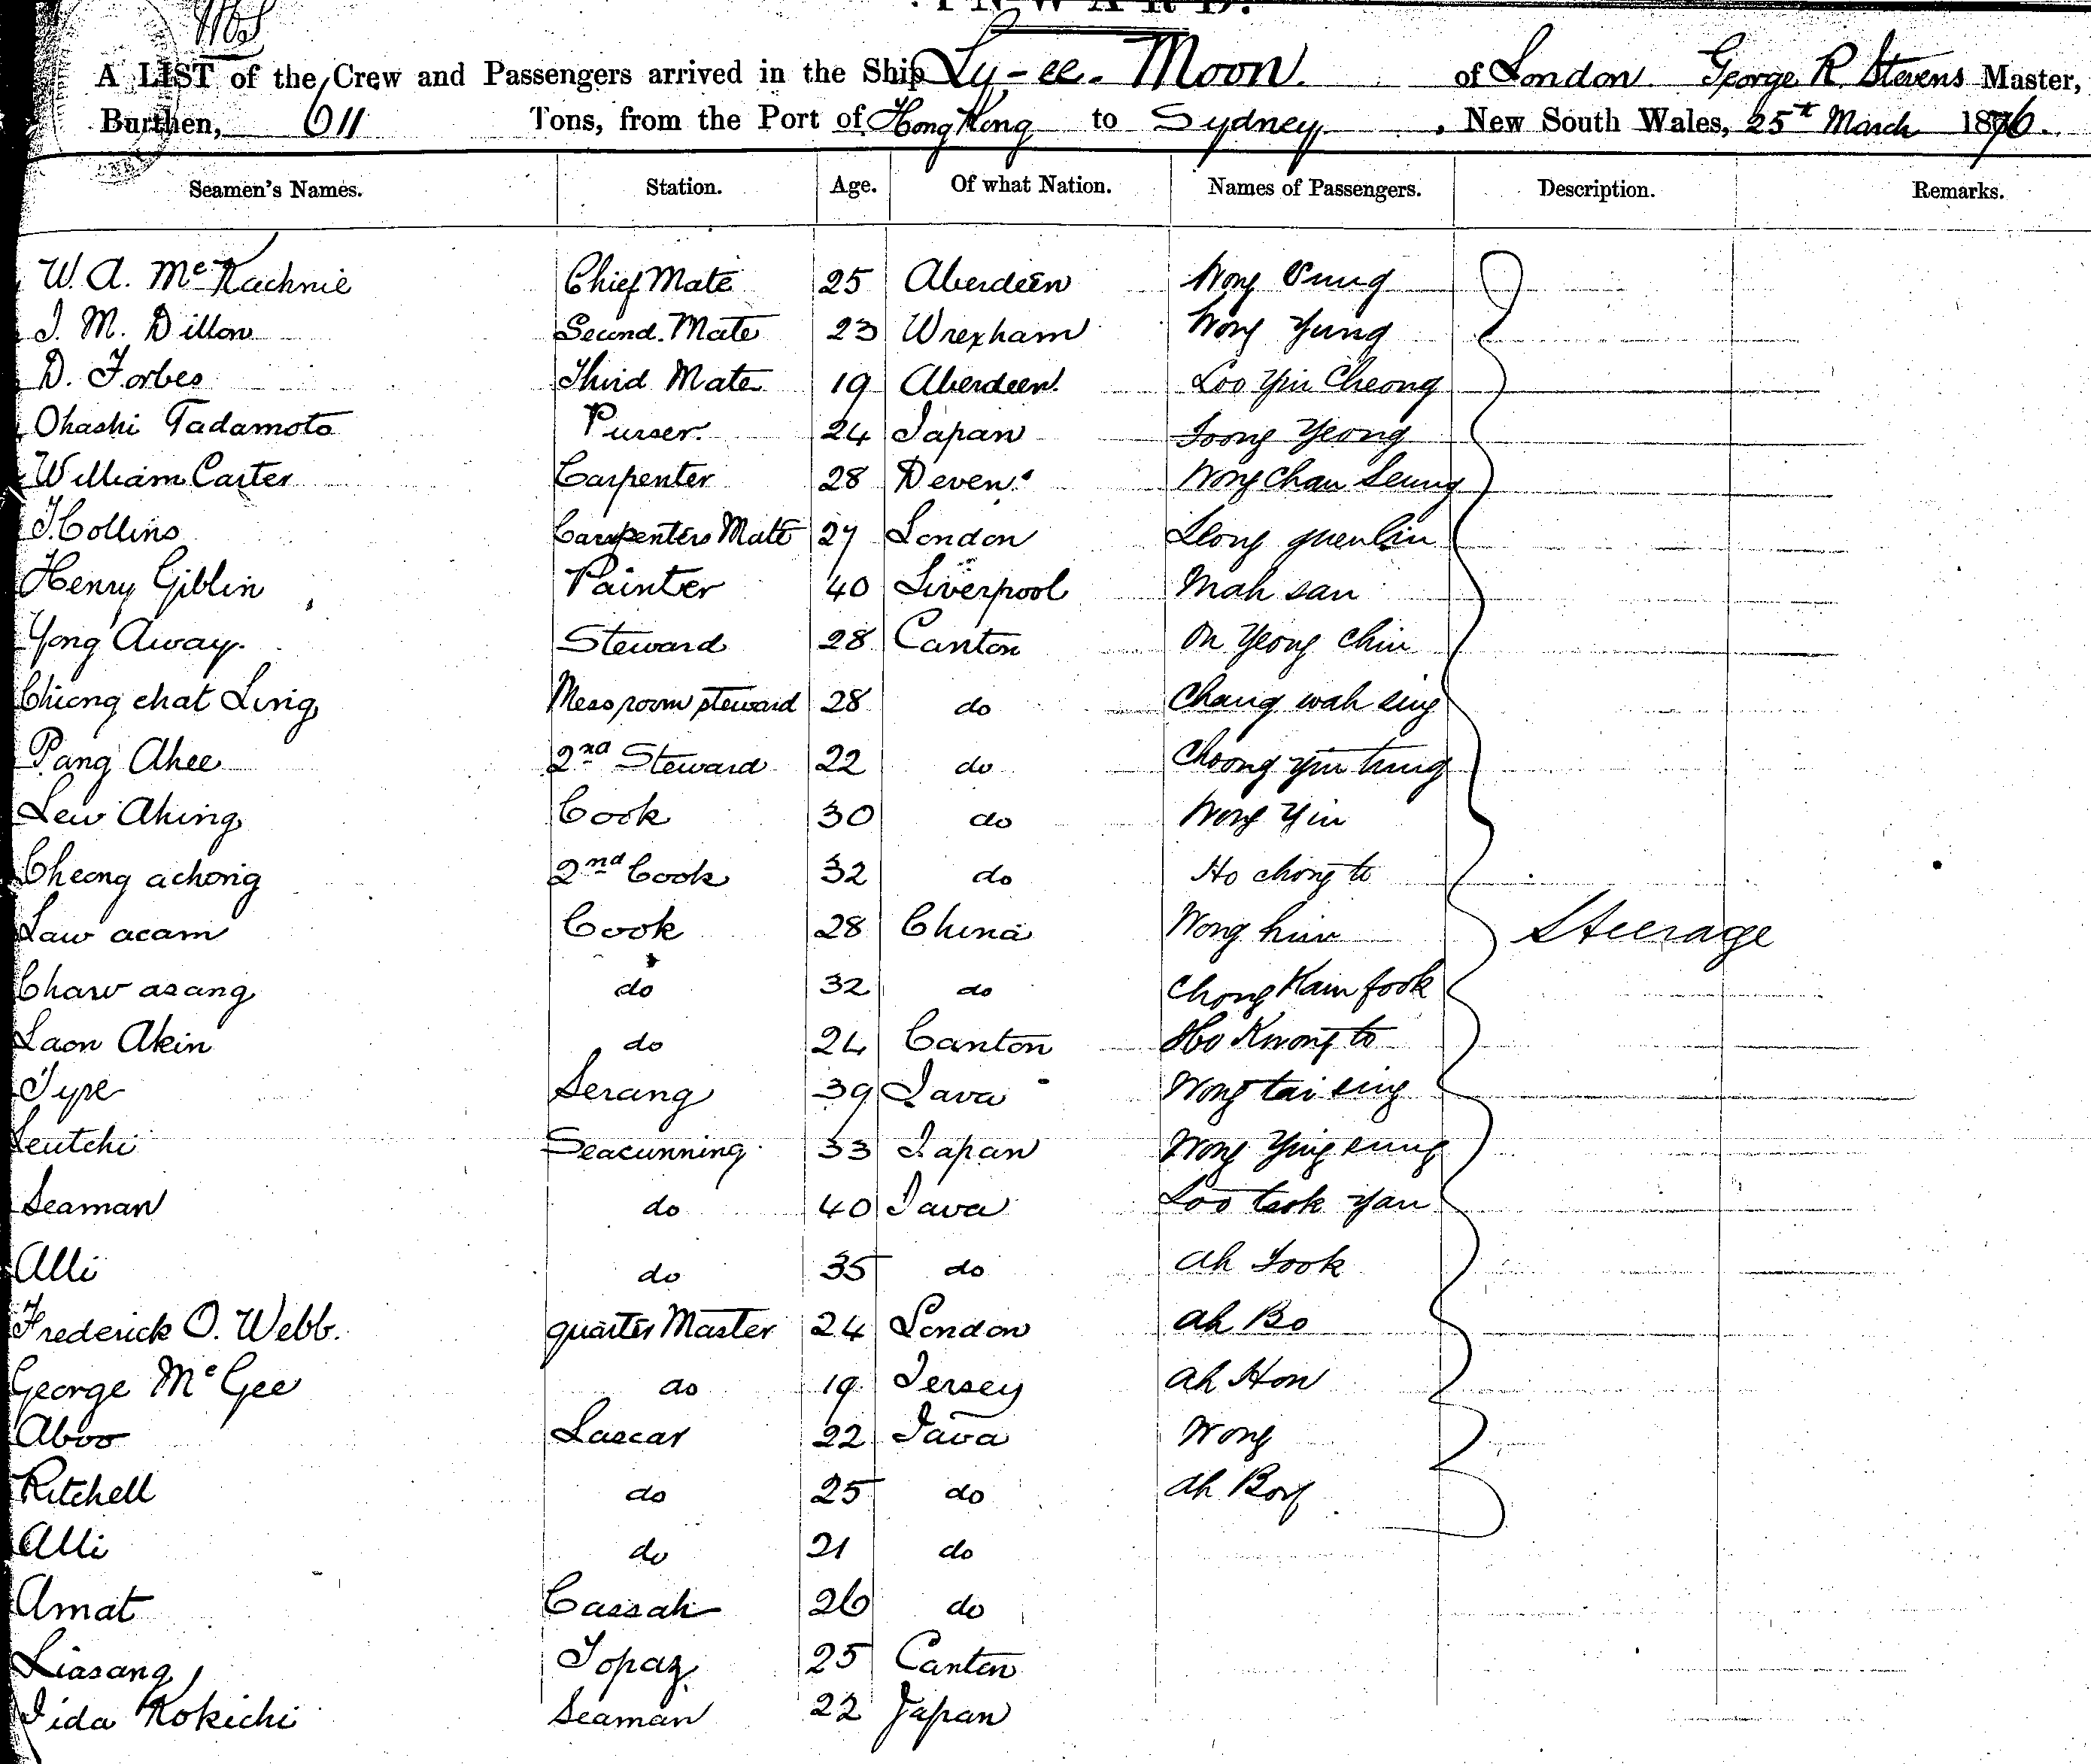 INWARD.
A LIST of the Crew and Passengers arrived in the Ship Ly-ee-Moon of London George R. Stevens Master,
Burthen, 611 Tons, from the Port of Hong Kong to Sydney, New South Wales, 25th March 1876.
Seamen's Names. Station. Age. Of what Nation. Names of Passengers. Description. Remarks.
W. A. McKachnie Chief Mate 25 Aberdeen Wong
J. M. Dillon Second. Mate 23 Wrexham Wong Yung
D. Forbes Third Mate 19 Aberdeen Loo Yin Cheong
Ohashi Tadamoto Purser. 24 Japan Yeong
William Carter Carpenter 28 Deven Wong Chau Seung
J. Collins Carpenters Mate 27 London Leong
Henry Giblin Painter 40 Liverpool Mah san
Yong Away. Steward 28 Canton On Yeong Chin
Chiong chat Ling Mess room steward 28 do Chang wah sing
Pang Ahee 2nd Steward 22 do Choong yin tung
Lew Ahing Cook 30 do Wong Yin
Cheong achong 2nd Cook 32 do Ho chong to
Law acam Cook 28 China Wong hin Steerage
Chaw asang do 32 do Chong Kam fook
Laon Akin do 24 Canton Ho Kwong to
Type Serang 39 Java Wong tai sing
Seutchi Seacunning 33 Japan Wong Ying
Seaman do 40 Java Loo tsok yan
Alli do 35 do Ah
Frederick O. Webb. quarter Master 24 London Ah Bo
George McGee do 19 Jersey Ah Hon
Aboo Lascar 22 Java Wong
Ritchell do 25 do Ah
Alli do 21 do
Amat Cassab 26 do
Liasang Topaz 25 Canton
Iida Kokichi Seaman 22 Japan